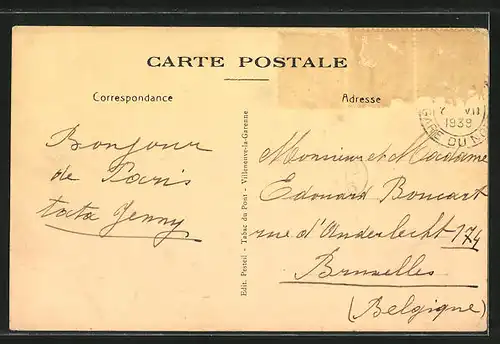 CARTE POSTALE
Correspondance
Adresse
7 VII
1939
GARE DU NORD
Bonjour
de Paris
tata Jenny
Edit. Pesteil - Tabac du Pont - Villeneuve-la-Garenne
Monsieur et Madame
Edouard Boncart
rue d'Anderlecht 174
Bruxelles
(Belgique)